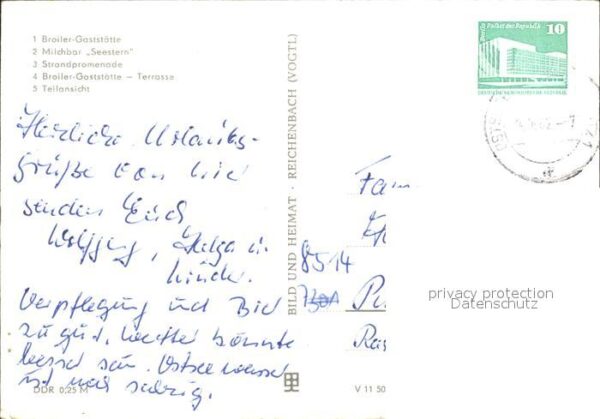 1 Broiler-Gaststätte
2 Milchbar „Seestern"
3 Strandpromenade
4 Broiler-Gaststätte – Terrasse
5 Teilansicht
Herzliche Urlaubs-
grüße von hier
senden Euch
Wolfgang, Helga u.
Kinder.
Verpflegung und Bier
zu gut, Wetter könnte
besser sein. Ostseewasser
ist noch salzig.
DDR 0,25 M
BILD UND HEIMAT · REICHENBACH (VOGTL)
V 11 50
Berlin Palast der Republik
10
DEUTSCHE DEMOKRATISCHE REPUBLIK
Fam
8514
privacy protection
Datenschutz